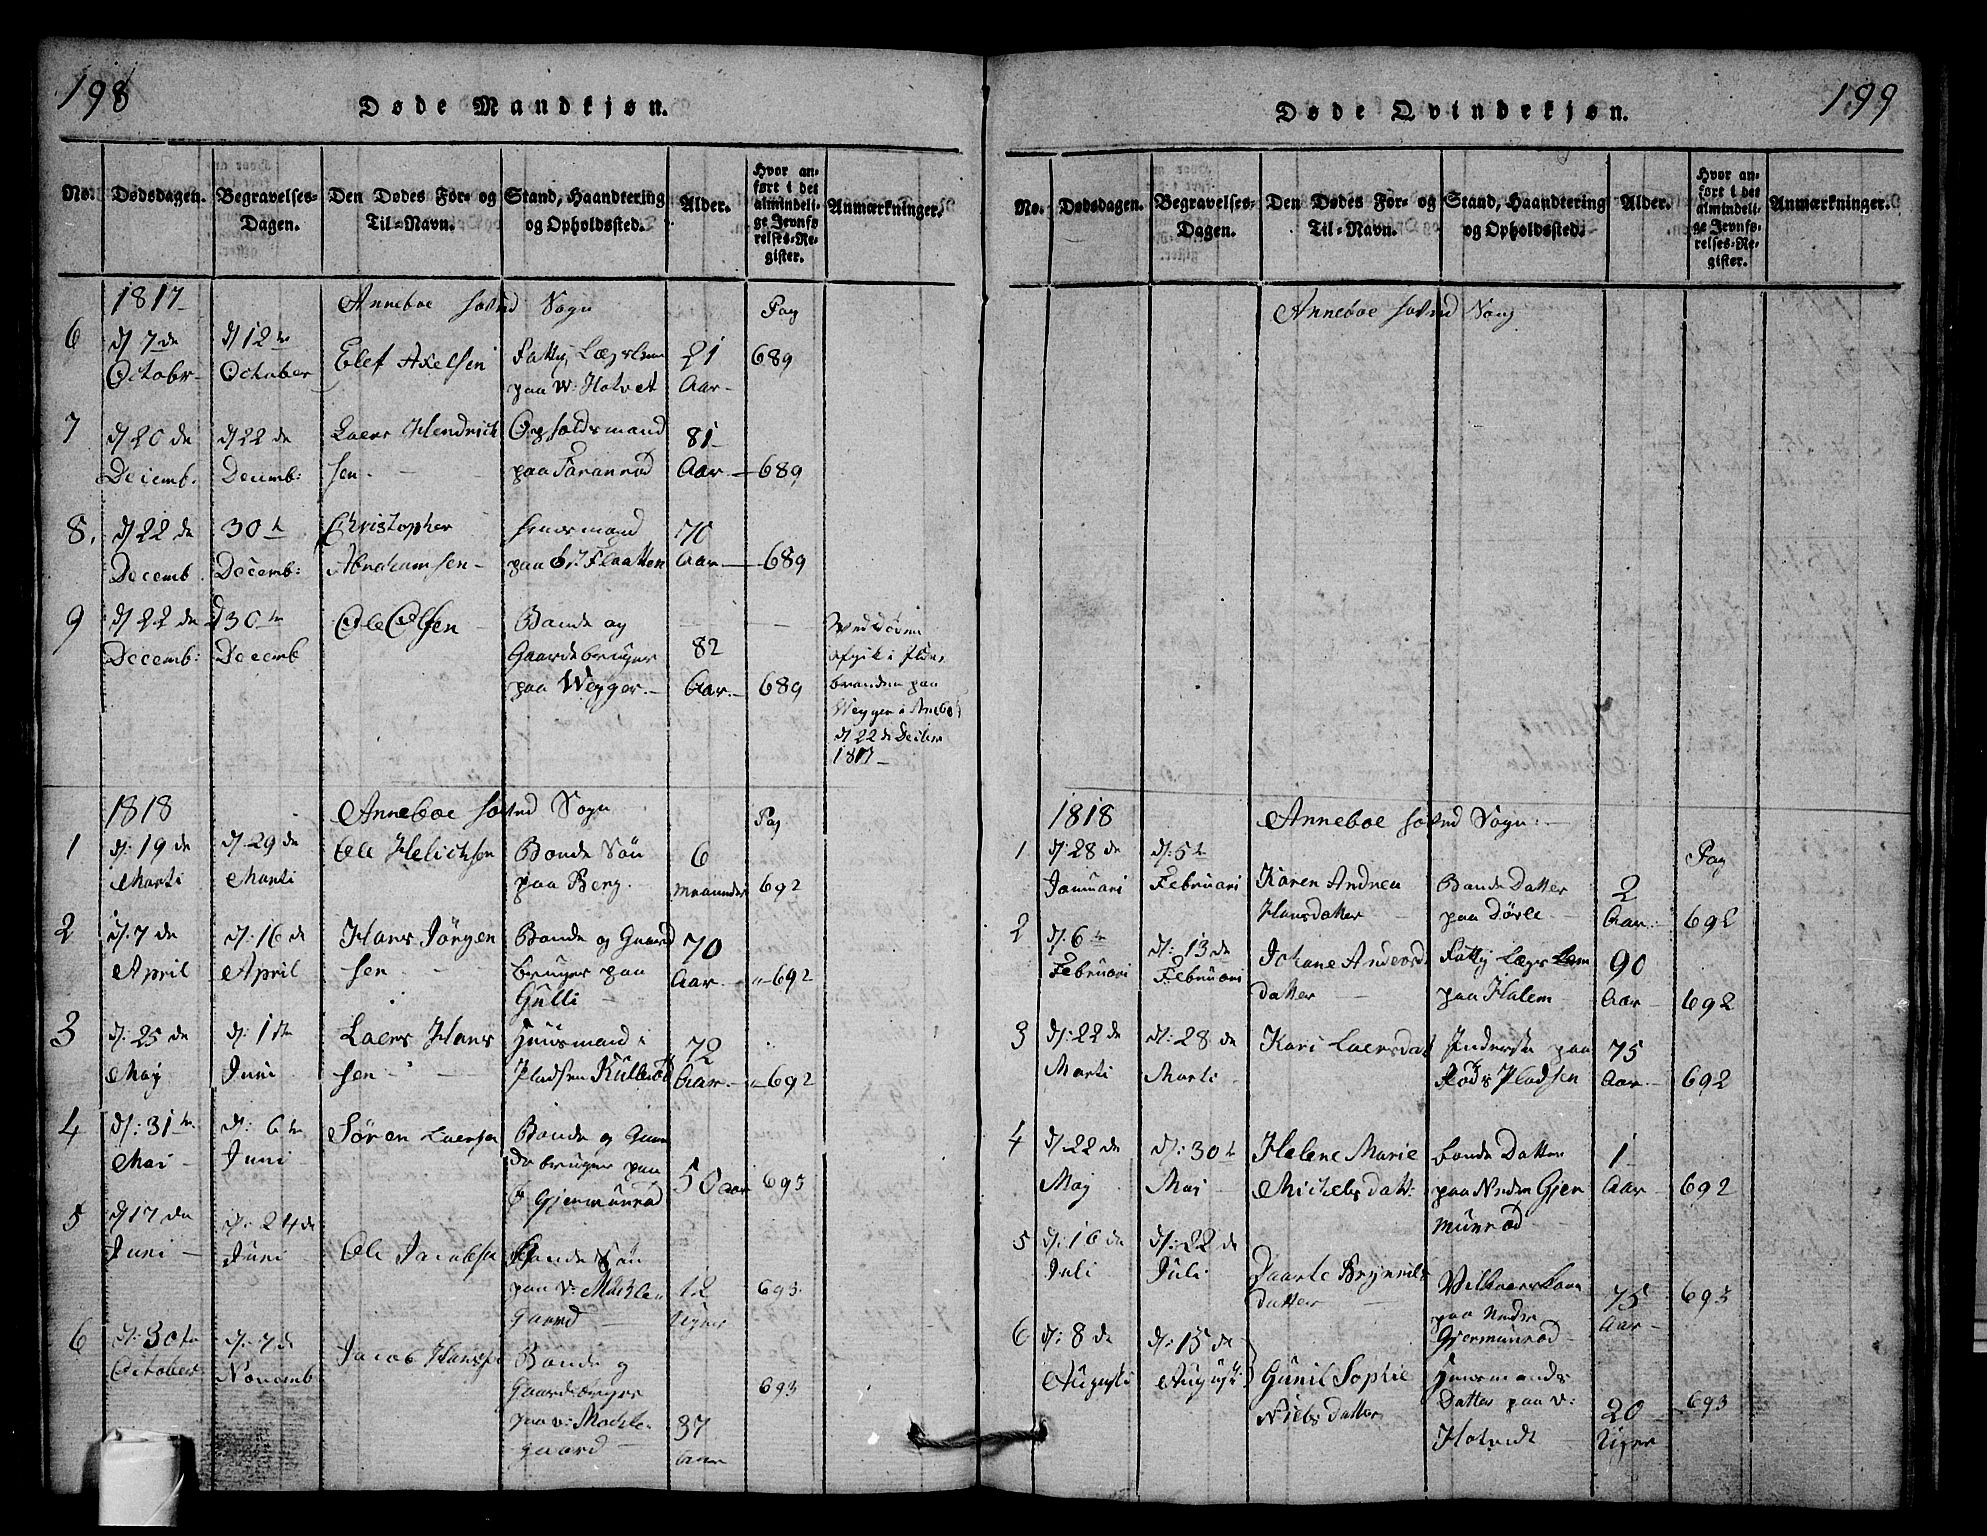 198
Døde Mandkjøn.
No. Dødsdagen. Begravelses-Dagen. Den Dødes For- og Til-Navn. Stand, Haandtering og Opholdssted. Alder. Hvor anført i det almindelige Jevnførelses-Register. Anmærkninger.
1817 Anneboe Sogn Pag
6 d 7de d 12te Elef Axelsen Fattig 21 689
Octobr October paa W: Hotvet Aar
7 d 20de d 22de Laers Hendrich Opholdsmand 81
Decemb. Decemb: sen paa Faranrød Aar 689
8. d 22de 30t Christopher Huusmand 70
Decemb. Decemb: Abrahamsen paa Flaatten Aar 689
9 d 22de d 30te Ole Olsen Bonde og
Decemb: Decemb Gaardebruger 82
paa Wegger Aar 689
branden paa
Wegger i Anebo
d 22de
1817
1818 Anneboe Sogn Pag
1 d: 19de d: 29de Ole Helichsen Bonde Søn 6
Marti Marti paa Berg maaneder 692
2 d. 7de d: 16de Hans Jörgen Bonde og Gaard 70
April April sen bruger paa Aar 692
Gulli
3 d: 25de d: 1te Laers Hans Huusmand i 72
May Juni sen Pladsen Kullerød Aar 692
4 d: 31te d: 6te Søren Laersen Bonde og Gaar
Mai Juni de bruger paa 50 aar 693
Gjermunrød
5 d 17de d: 24de
Juni Juni Ole Jacobsen Bonde Søn
paa v: Mæhle 12 693
gaard Uger
6 d: 30te d: 7de Jacob Hansen Bonde og
October Novemb Gaardebruger 693
paa v: Mæhle 37
gaard Aar
199
Døde Qvindekjøn.
No. Dødsdagen. Begravelses-Dagen. Den Dødes For- og Til-Navn. Stand, Haandtering og Opholdssted. Alder. Hvor anført i det almindelige Jevnførelses-Register. Anmærkninger.
Anneboe Sogn
1818 Anneboe Sogn
1 d: 28de d: 5te Pag
Januari Februari Karen Andrea Bonde Datter 2
Hansdatter paa Dørle Aar 692
2 d: 6te d: 13de Johane Anders Fattig Lægs Lem 90
Februari Februari datter paa Halem Aar 692
3 d: 22de d: 28de Kari Laersdat Inderste paa 75
Marti Marti Røds Pladsen Aar 692
4 d: 22de d: 30t Helene Marie bonde Datter 1
May Mai Michelsdatt: paa Neden Gjer Aar 692
munrød
5 d: 16de d: 22de
Juli Juli Daarte Brynnils
datter paa Nedre 75 693
Gjermunrød Aar
6 d: 8de d: 15de
Augusti August Gunil Sophie Huusmands
Nielsdatter Datter paa v: 20 693
Hotvedt Uger